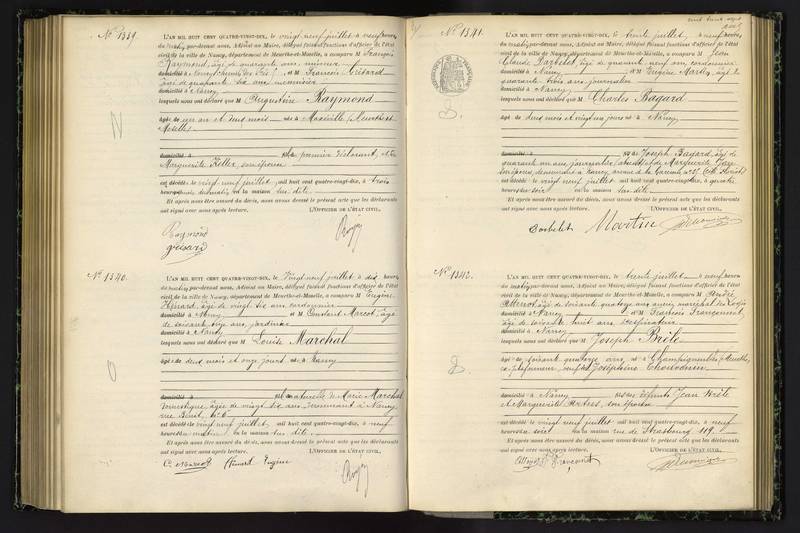 N° 1339.
L'AN MIL HUIT CENT QUATRE-VINGT-DIX, le vingt neuf juillet, à neuf heures
du matin, par-devant nous, Adjoint au Maire, délégué faisant fonctions d'officier de l'état
civil de la ville de Nancy, département de Meurthe-et-Moselle, a comparu M François
Raymond, âgé de quarante ans, mineur
domicilié à et M François Grisard
âgé de quarante six ans
domicilié à Nancy
lesquels nous ont déclaré que M Augustine Raymond
âgée de un an et deux mois née à Maxéville (Meurthe et
Moselle)
domicilié à
Marguerite Keller, son épouse
est décédée le vingt neuf juillet, mil huit cent quatre-vingt-dix, à trois
heures du matin, en la maison sus dite.
Et après nous être assuré du décès, nous avons dressé le présent acte que les déclarants
ont signé avec nous après lecture. L'OFFICIER DE L'ÉTAT CIVIL,
Raymond
grisard
N° 1340.
L'AN MIL HUIT CENT QUATRE-VINGT-DIX, le vingt neuf juillet à dix heures,
du matin, par-devant nous, Adjoint au Maire, délégué faisant fonctions d'officier de l'état
civil de la ville de Nancy, département de Meurthe-et-Moselle, a comparu M Eugène
ans, cordonnier
domicilié à Nancy et M Constant Marcot, âgé
de soixante ans, jardinier
domicilié à Nancy
lesquels nous ont déclaré que M Louise Marchal
âgée de deux mois et onze jours née à Nancy
domicilié à fille naturelle de Marie Marchal
domestique, âgée de vingt six ans, demeurant à Nancy,
est décédée le vingt neuf juillet, mil huit cent quatre-vingt-dix, à neuf
heures du matin, en la maison sus dite.
Et après nous être assuré du décès, nous avons dressé le présent acte que les déclarants
ont signé avec nous après lecture. L'OFFICIER DE L'ÉTAT CIVIL,
C. Marcot Eugène
N° 1341.
L'AN MIL HUIT CENT QUATRE-VINGT-DIX, le trente juillet, à neuf heures,
du matin, par-devant nous, Adjoint au Maire, délégué faisant fonctions d'officier de l'état
civil de la ville de Nancy, département de Meurthe-et-Moselle, a comparu M Jean
Claude Darbelet, âgé de quarante neuf ans, cordonnier
domicilié à Nancy et M Eugène Martin, âgé de
quarante trois ans, journalier
domicilié à Nancy
lesquels nous ont déclaré que M Charles Bagard
âgé de deux mois et vingt un jours né à Nancy
domicilié à fils de Joseph Bagard, âgé de
quarante un ans, journalier (absent) et de Marguerite
son épouse, demeurant à Nancy,
est décédé le vingt neuf juillet mil huit cent quatre-vingt-dix, à quatre
heures du soir en la maison sus dite.
Et après nous être assuré du décès, nous avons dressé le présent acte que les déclarants
ont signé avec nous après lecture. L'OFFICIER DE L'ÉTAT CIVIL,
Darbelet Martin
N° 1342.
L'AN MIL HUIT CENT QUATRE-VINGT-DIX, le trente juillet à neuf heures
du matin, par-devant nous, Adjoint au Maire, délégué faisant fonctions d'officier de l'état
civil de la ville de Nancy, département de Meurthe-et-Moselle, a comparu M
âgé de soixante quatorze ans, ancien maréchal des logis
domicilié à Nancy et M François
âgé de soixante huit ans
domicilié à Nancy
lesquels nous ont déclaré que M Joseph Brêle
âgé de soixante quatorze ans né à Champigneulles, Meurthe,
veuf de Joséphine
domicilié à Nancy fils des défunts Jean Brêle
et Marguerite son épouse
est décédé le vingt neuf juillet mil huit cent quatre-vingt-dix, à neuf
heures du soir en la maison rue de Strasbourg 119.
Et après nous être assuré du décès, nous avons dressé le présent acte que les déclarants
ont signé avec nous après lecture. L'OFFICIER DE L'ÉTAT CIVIL,